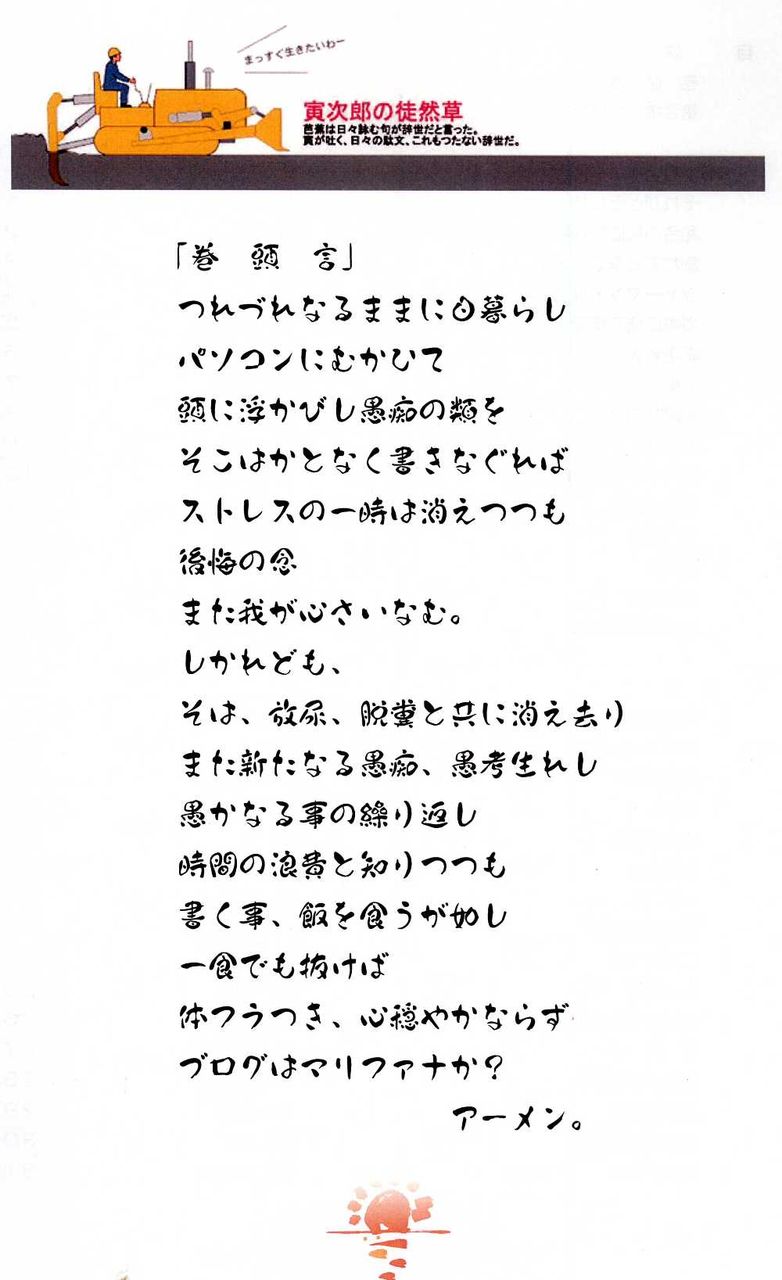 まっすぐ生きたいわー
寅次郎の徒然草
芭蕉は日々詠む句が辞世だと言った。
寅が吐く、日々の駄文、これもつたない辞世だ。
「巻　頭　言」
つれづれなるままに日暮らし
パソコンにむかひて
頭に浮かびし愚痴の類を
そこはかとなく書きなぐれば
ストレスの一時は消えつつも
後悔の念
また我が心さいなむ。
しかれども、
そは、放尿、脱糞と共に消え去り
また新たなる愚痴、愚考生れし
愚かなる事の繰り返し
時間の浪費と知りつつも
書く事、飯を食うが如し
一食でも抜けば
体フうつき、心穏やかならず
ブログはマリファナか？
アーメン。